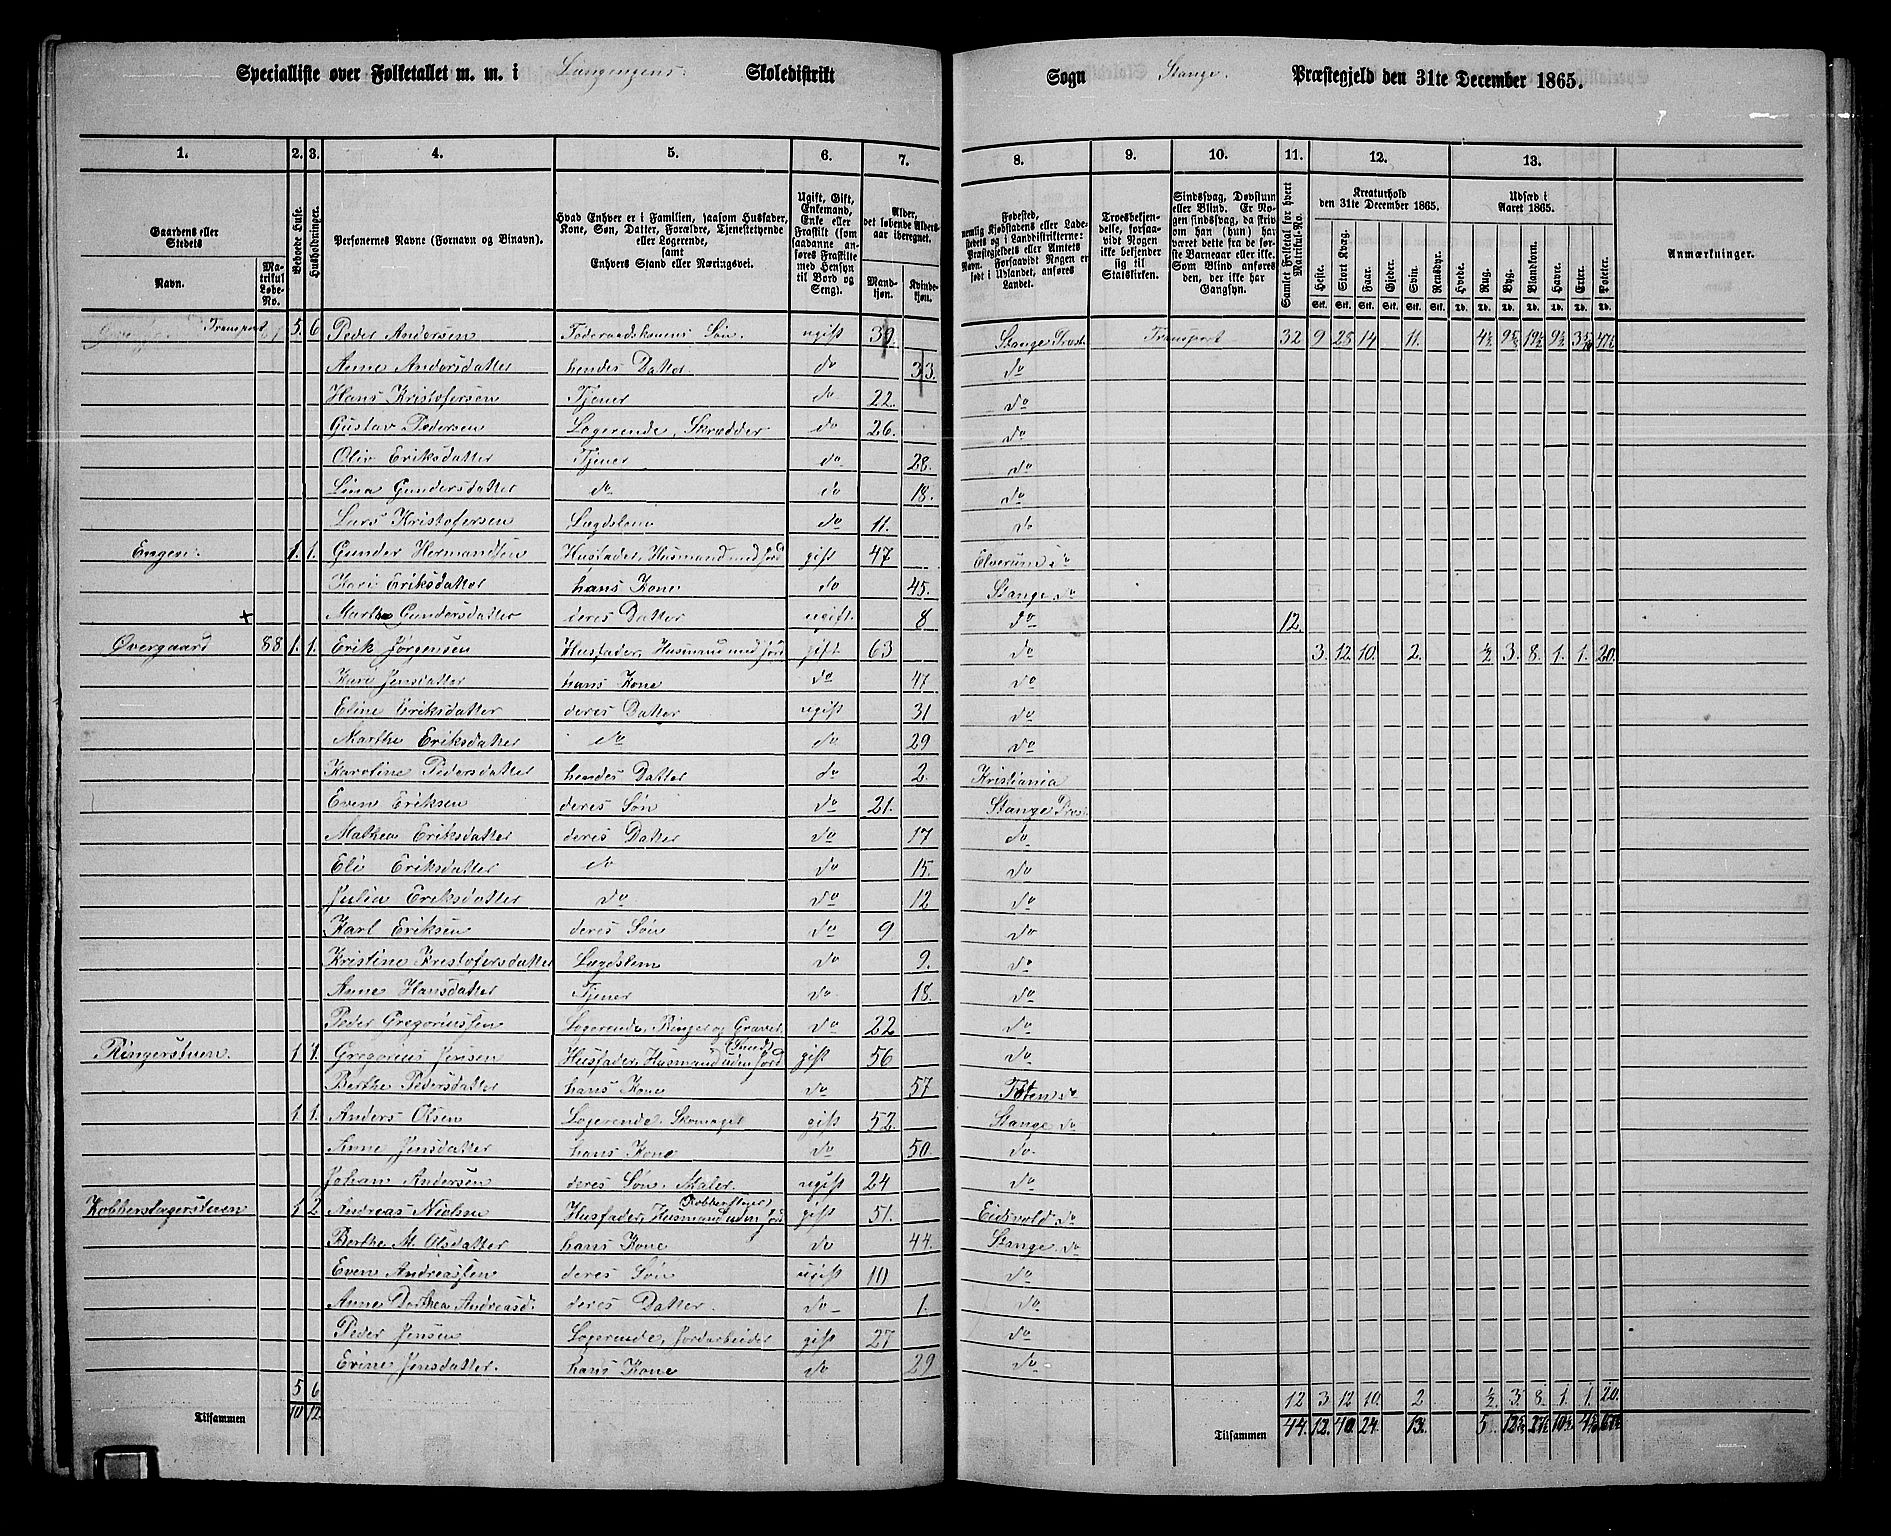 Specialliste over Folketallet m. m. i Langengens Skoledistrikt Sogn Stange Præstegjeld den 31te December 1865.
1. 2. 3. 4. 5. 6. 7. 8. 9. 10. 11. 12. 13.
Gaardens eller Stedets
Navn.
Matrikul Løbe-No.
Beboede Huse.
Husholdninger.
Personernes Navne (Fornavn og Binavn).
Hvad Enhver er i Familien, saasom Husfader, Kone, Søn, Datter, Forældre, Tjenestetyende eller Logerende, samt Enhvers Stand eller Næringsvei.
Ugift, Gift, Enkemand, Enke eller Fraskilt (som saadanne anføres Fraskilte med Hensyn til Bord og Seng).
Alder, det løbende Aldersaar iberegnet.
Mandkjøn. Kvindekjøn.
Fødested, nemlig Kjøbstadens eller Ladestedets og i Landdistrikterne: Præstegjeldets eller Amtets Navn. Forsaavidt Nogen er født i Udlandet, anføres Landet.
Troesbekjendelse, forsaavidt Nogen ikke bekjender sig til Statskirken.
Sindssvag, Døvstum eller Blind. Er Nogen sindssvag, da skrives om han (hun) har været dette fra de første Barneaar eller ikke. Som Blind anføres den, der ikke har Gangsyn.
Samlet Folketal for hvert Matrikul-No.
Kreaturhold den 31te December 1865.
Heste. Stort Kvæg. Faar. Gjeder. Svin. Rensdyr.
Udsæd i Aaret 1865.
Hvede. Rug. Byg. Blandkorn. Havre. Erter. Poteter.
Anmærkninger.
Transport 5. 6 Peder Andersen Føderaadskonens Søn. ugift 39. Stange Præst. Transport 32 9 28 14 11.
Anne Andersdatter hendes Datter. do 33. do
Hans Kristofersen Tjener do 22. do
Gustav Pedersen Logerende, Skrædder do 26. do
Oliv Eriksdatter Tjener do 28. do
Lina Gundersdatter do do 18. do
Lars Kristofersen Lægdslem do 11. do
Engen. 1. 1. Gunder Hermandsen Husfader, Husmand med Jord gift 47 Elverum do
Kari Eriksdatter hans Kone do 45. Stange do
x Marthe Gundersdatter deres Datter ugift. 8 do 12.
Øvergaard 88 1. 1. Erik Jørgensen Husfader, Husmand med Jord gift 63 do 3. 12 10. 2. ½ 3. 8. 1. 1. 20.
Kari Jensdatter hans Kone do 47 do
Eline Eriksdatter deres Datter ugift 31 do
Marthe Eriksdatter do do 29 do
Karoline Pedersdatter hendes Datter do 2. Kristiania
Even Eriksen deres Søn do 21. Stange Præs.
Mathea Eriksdatter deres Datter do 17 do
Eli Eriksdatter do do 15. do
Julia Eriksdatter do do 12 do
Karl Eriksen deres Søn do 9 do
Kristine Kristofersdatter Lægdslem do 9. do
Anne Hansdatter Tjener do 18. do
Peder Gregoriussen Logerende, Ringer og Graver. do 22 do
Ringerstuen. 1 1. Gregorius Jensen Husfader, Husmand uden Jord gift 56 do
Berthe Pedersdatter hans Kone do 57 Toten do
1 1. Anders Olsen Logerende, Skomager gift 52. Stange do
Anne Jensdatter hans Kone do 50. do.
Johan Andersen deres Søn, Maler. ugift 24 do
Kobberslagerstuen 1 2 Andreas Nielsen Husfader, Husmand uden Jord gift 51. Eidsvold do
Berthe M. Olsdatter hans Kone do 44. Stange do
Even Andreassen deres Søn ugift 10 do
Anne Dorthea Andreasd. deres Datter. do 1. do
Peder Jensen Logerende, Jordarbeider gift 27 do
Erine Jensdatter. hans Kone do 29 do
5 6 12 3 12 10. 2 ½ 3. 8. 1. 1. 20.
Tilsammen 10 12. Tilsammen 44. 12. 40. 24. 13. 5